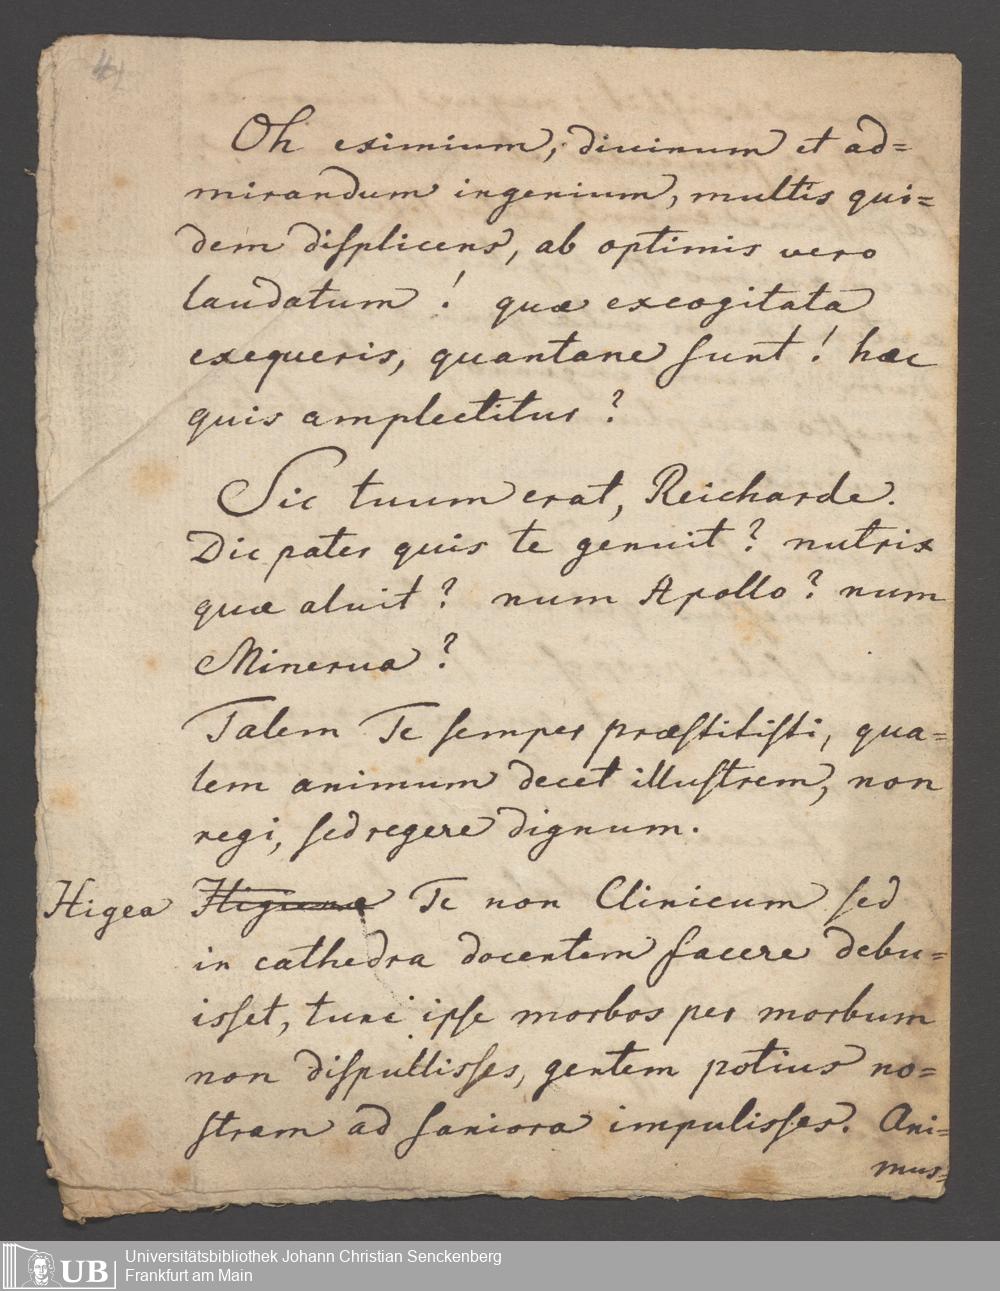 44
Oh eximium, divinum et ad=
mirandum ingenium, multis qui=
dem displicens, ab optimis vero
laudatum! quæ excogitata
exequeris, quantane sunt! hæc
quis amplectitur?
Sic tuum erat, Reicharde.
Dic pater quis te genuit? nutrix
quæ aluit? num Apollo? num
Minerua?
Talem Te semper præstitisti, qua=
lem animum decet illustrem, non
regi, sed regere dignum.
Higea Te non Clinicum sed
in cathedra docentem facere debu=
isset, tunc ipse morbos per morbum
non dispullisses, gentem potius no=
stram ad saniora impulisses. Ani=
mus=
UB Universitätsbibliothek Johann Christian Senckenberg
Frankfurt am Main